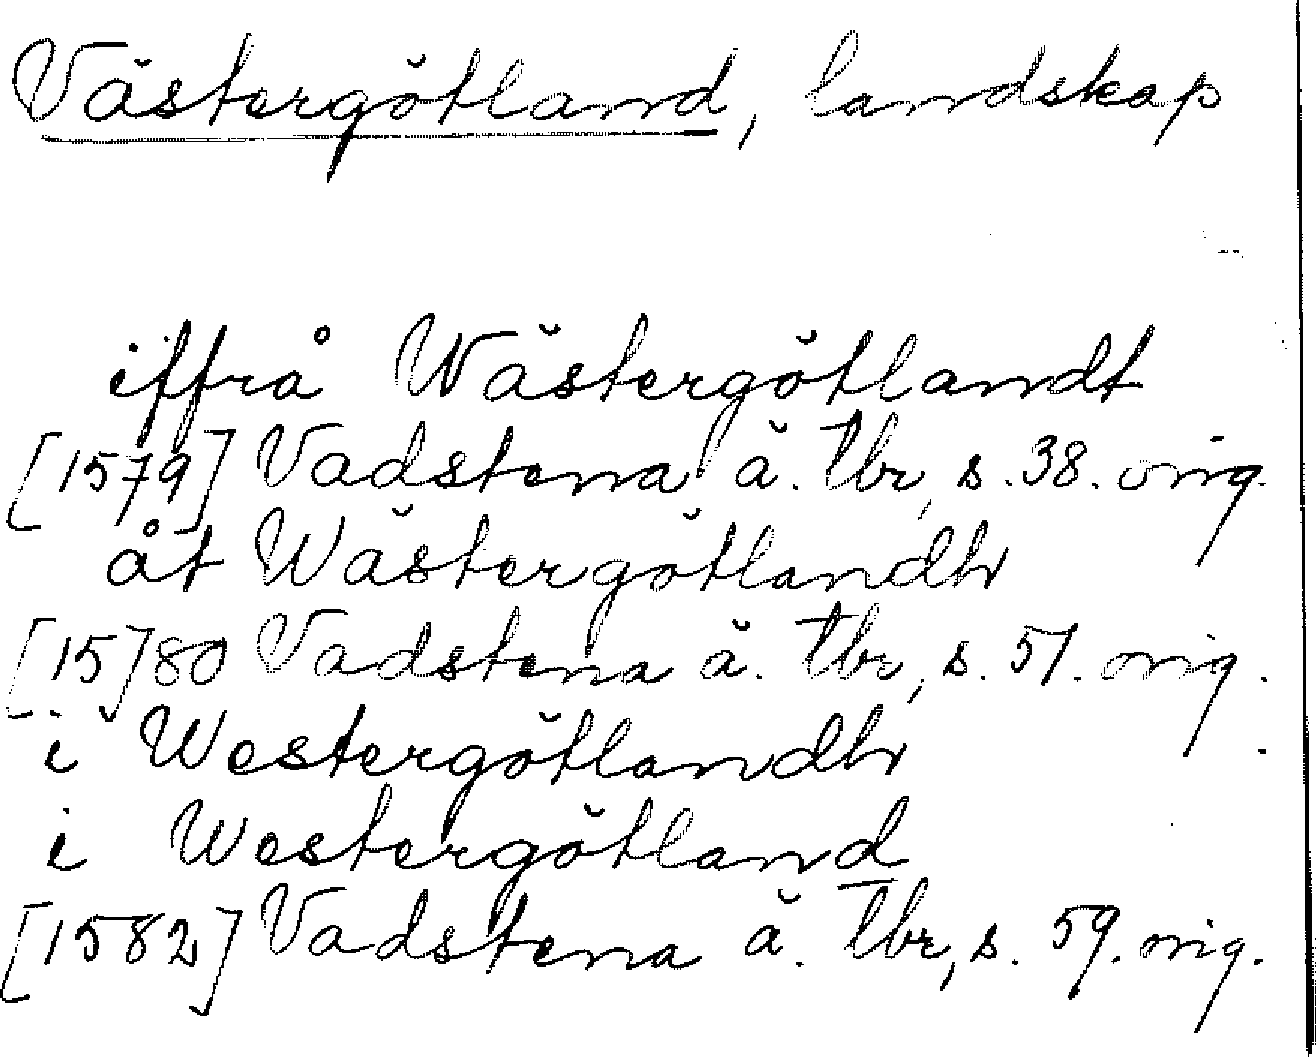 Västergötland, landskap
iffrå Wästergötlandt
[1579] Vadstena ä. tbr, s. 38. orig.
åt Wästergötlandh
[15]80 Vadstena ä. tbr, s. 51. orig.
i Westergötlandh
i Westergötland
[1582] Vadstena ä. tbr, s. 59. orig.